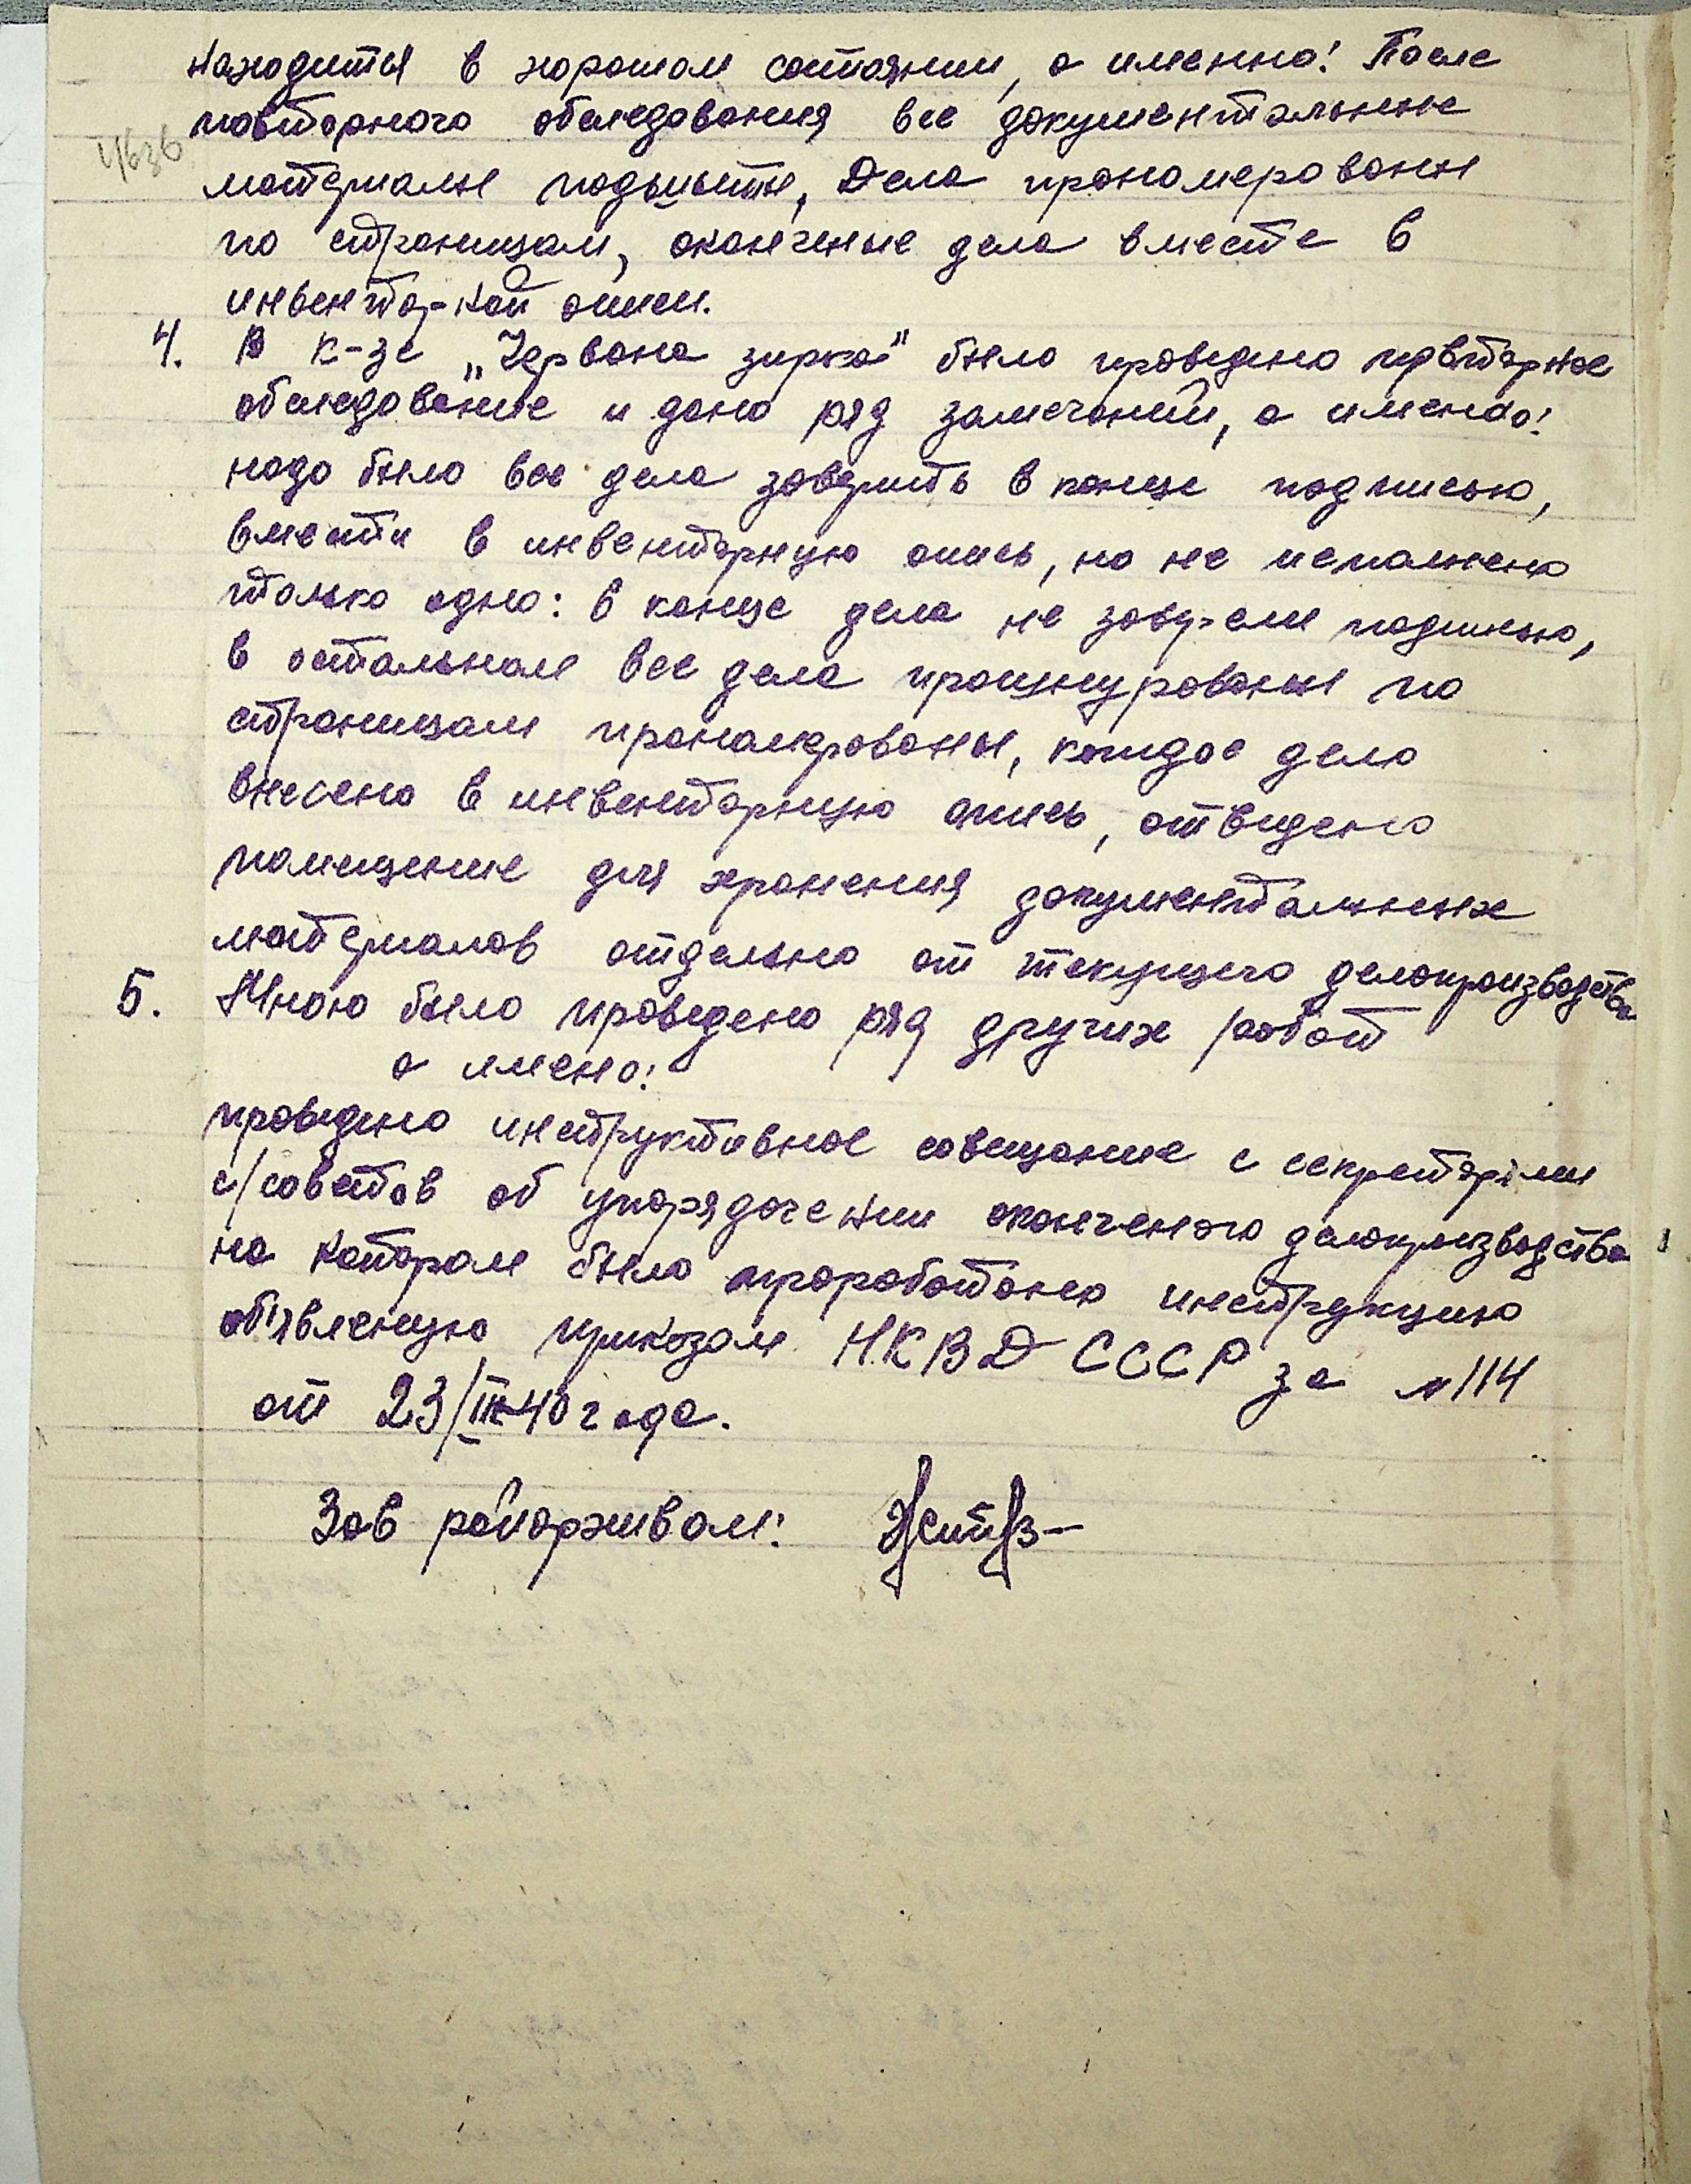 находиться в хорошом состоянии, а именно! После
повторного обследования все документальные
материалы подшыты, Дела прономерованы
по страницам, оконченые дела вместе в
инвентар-ной описи.
4. В к-зе „Червона зирка" было проведено повторное
обследование и дано ряд замечаний, а именно!
надо было все дела заверить в конце подписью,
вмести в инвентарную опись, но не исполнено
только одно: в конце дела не заверели подписью,
в остальном все дела прошнурованы по
страницам прономерованы, каждое дело
внесено в инвентарную опись, отведено
помещение для хранения документальных
материалов отдельно от текущего делопроизводства
5. Мною было проведено ряд других работ
а имено:
проведено инструктивное совещание с секретарями
с/советов об упорядочении оконченого делопроизводства
на котором было проработано инструкцию
об'явленую приказом Н.К.В.Д СССР за №114
от 23/III-40 года.
Зав райархивом: